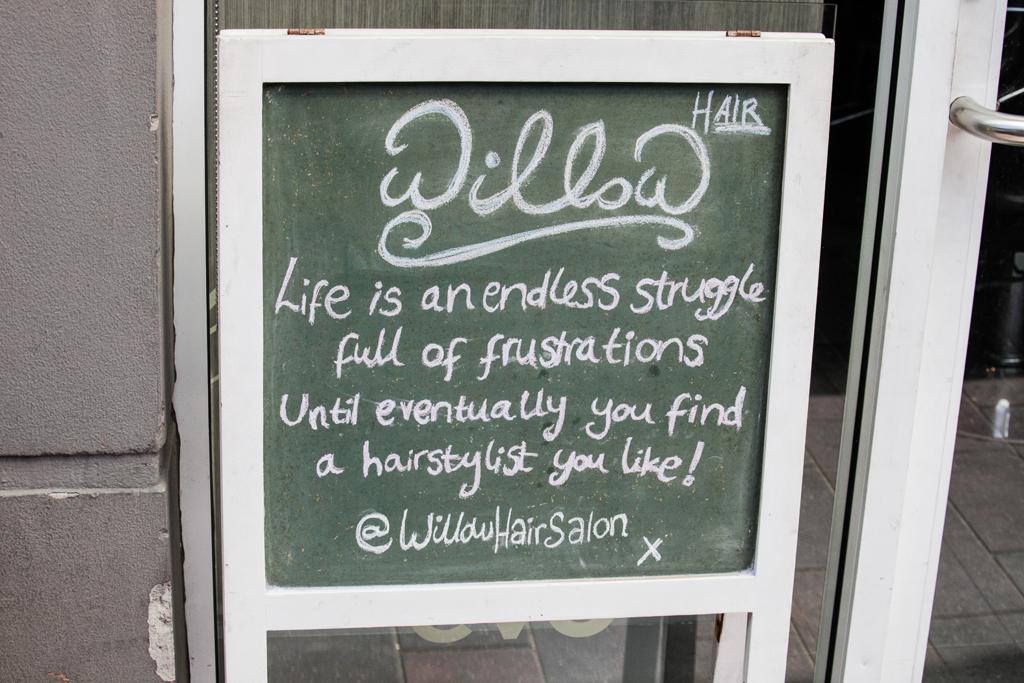 HAIR
Willow
Life is an endless struggle
full of frustrations
Until eventually you find
a hairstylist you like!
@WillowHairSalon
x